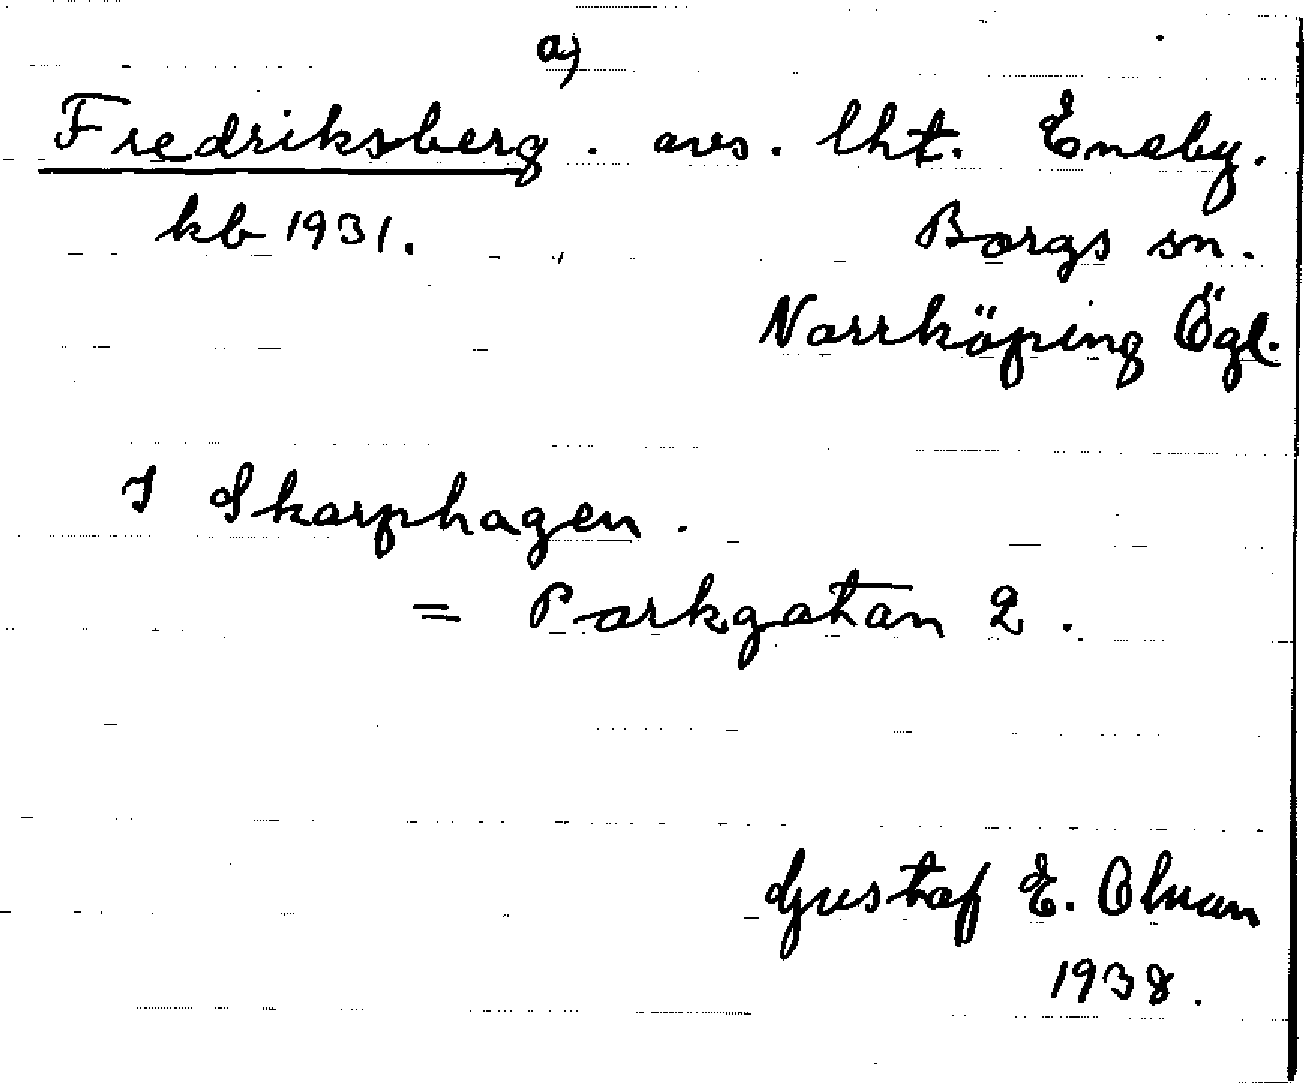 a)
Fredriksberg. avs. lht. Eneby.
kb 1931.
Borgs sn.
Norrköping Ögl.
I Skarphagen.
= Parkgatan 2.
Gustaf E. Olman
1938.